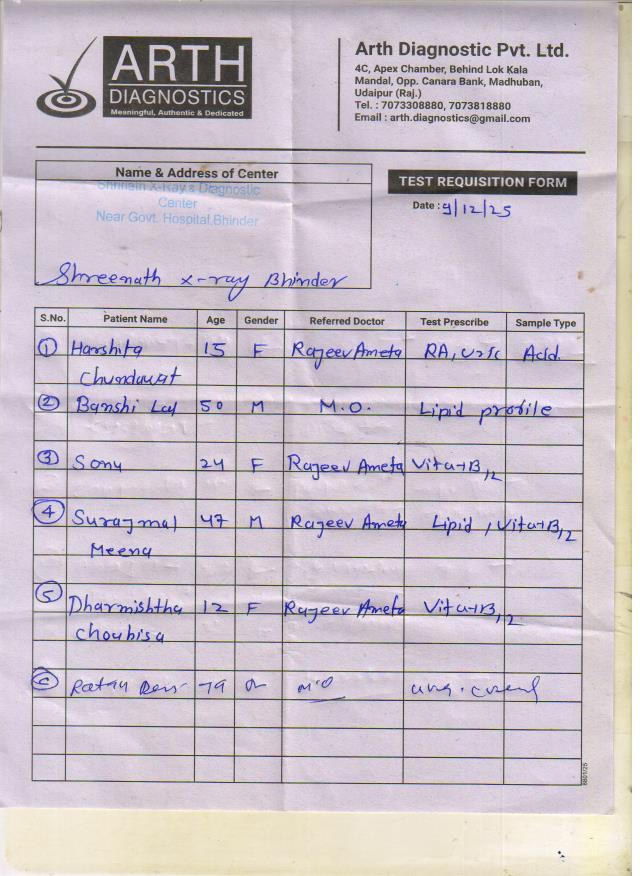 ARTH
DIAGNOSTICS
Meaningful, Authentic & Dedicated
Arth Diagnostic Pvt. Ltd.
4C, Apex Chamber, Behind Lok Kala
Mandal, Opp. Canara Bank, Madhuban,
Udaipur (Raj.)
Tel. : 7073308880, 7073818880
Email : arth.diagnostics@gmail.com
Name & Address of Center
X-Ray & Diagnostic
Center
Near Govt. Hospital,Bhinder
Shreenath x-ray Bhinder
TEST REQUISITION FORM
Date : 9/12/25
S.No. Patient Name Age Gender Referred Doctor Test Prescribe Sample Type
1 Harshita 15 F Rajeev Ameta RA, Uric Acid.
Chundawat
2 Banshi Lal 50 M M.O. Lipid profile
3 Sonu 24 F Rajeev Ameta Vita-B12
4 Surajmal 47 M Rajeev Ameta Lipid, Vita-B12
Meena
5 Dharmishtha 12 F Rajeev Ameta Vita-B12
Choubisa
Ratan 79 M.O